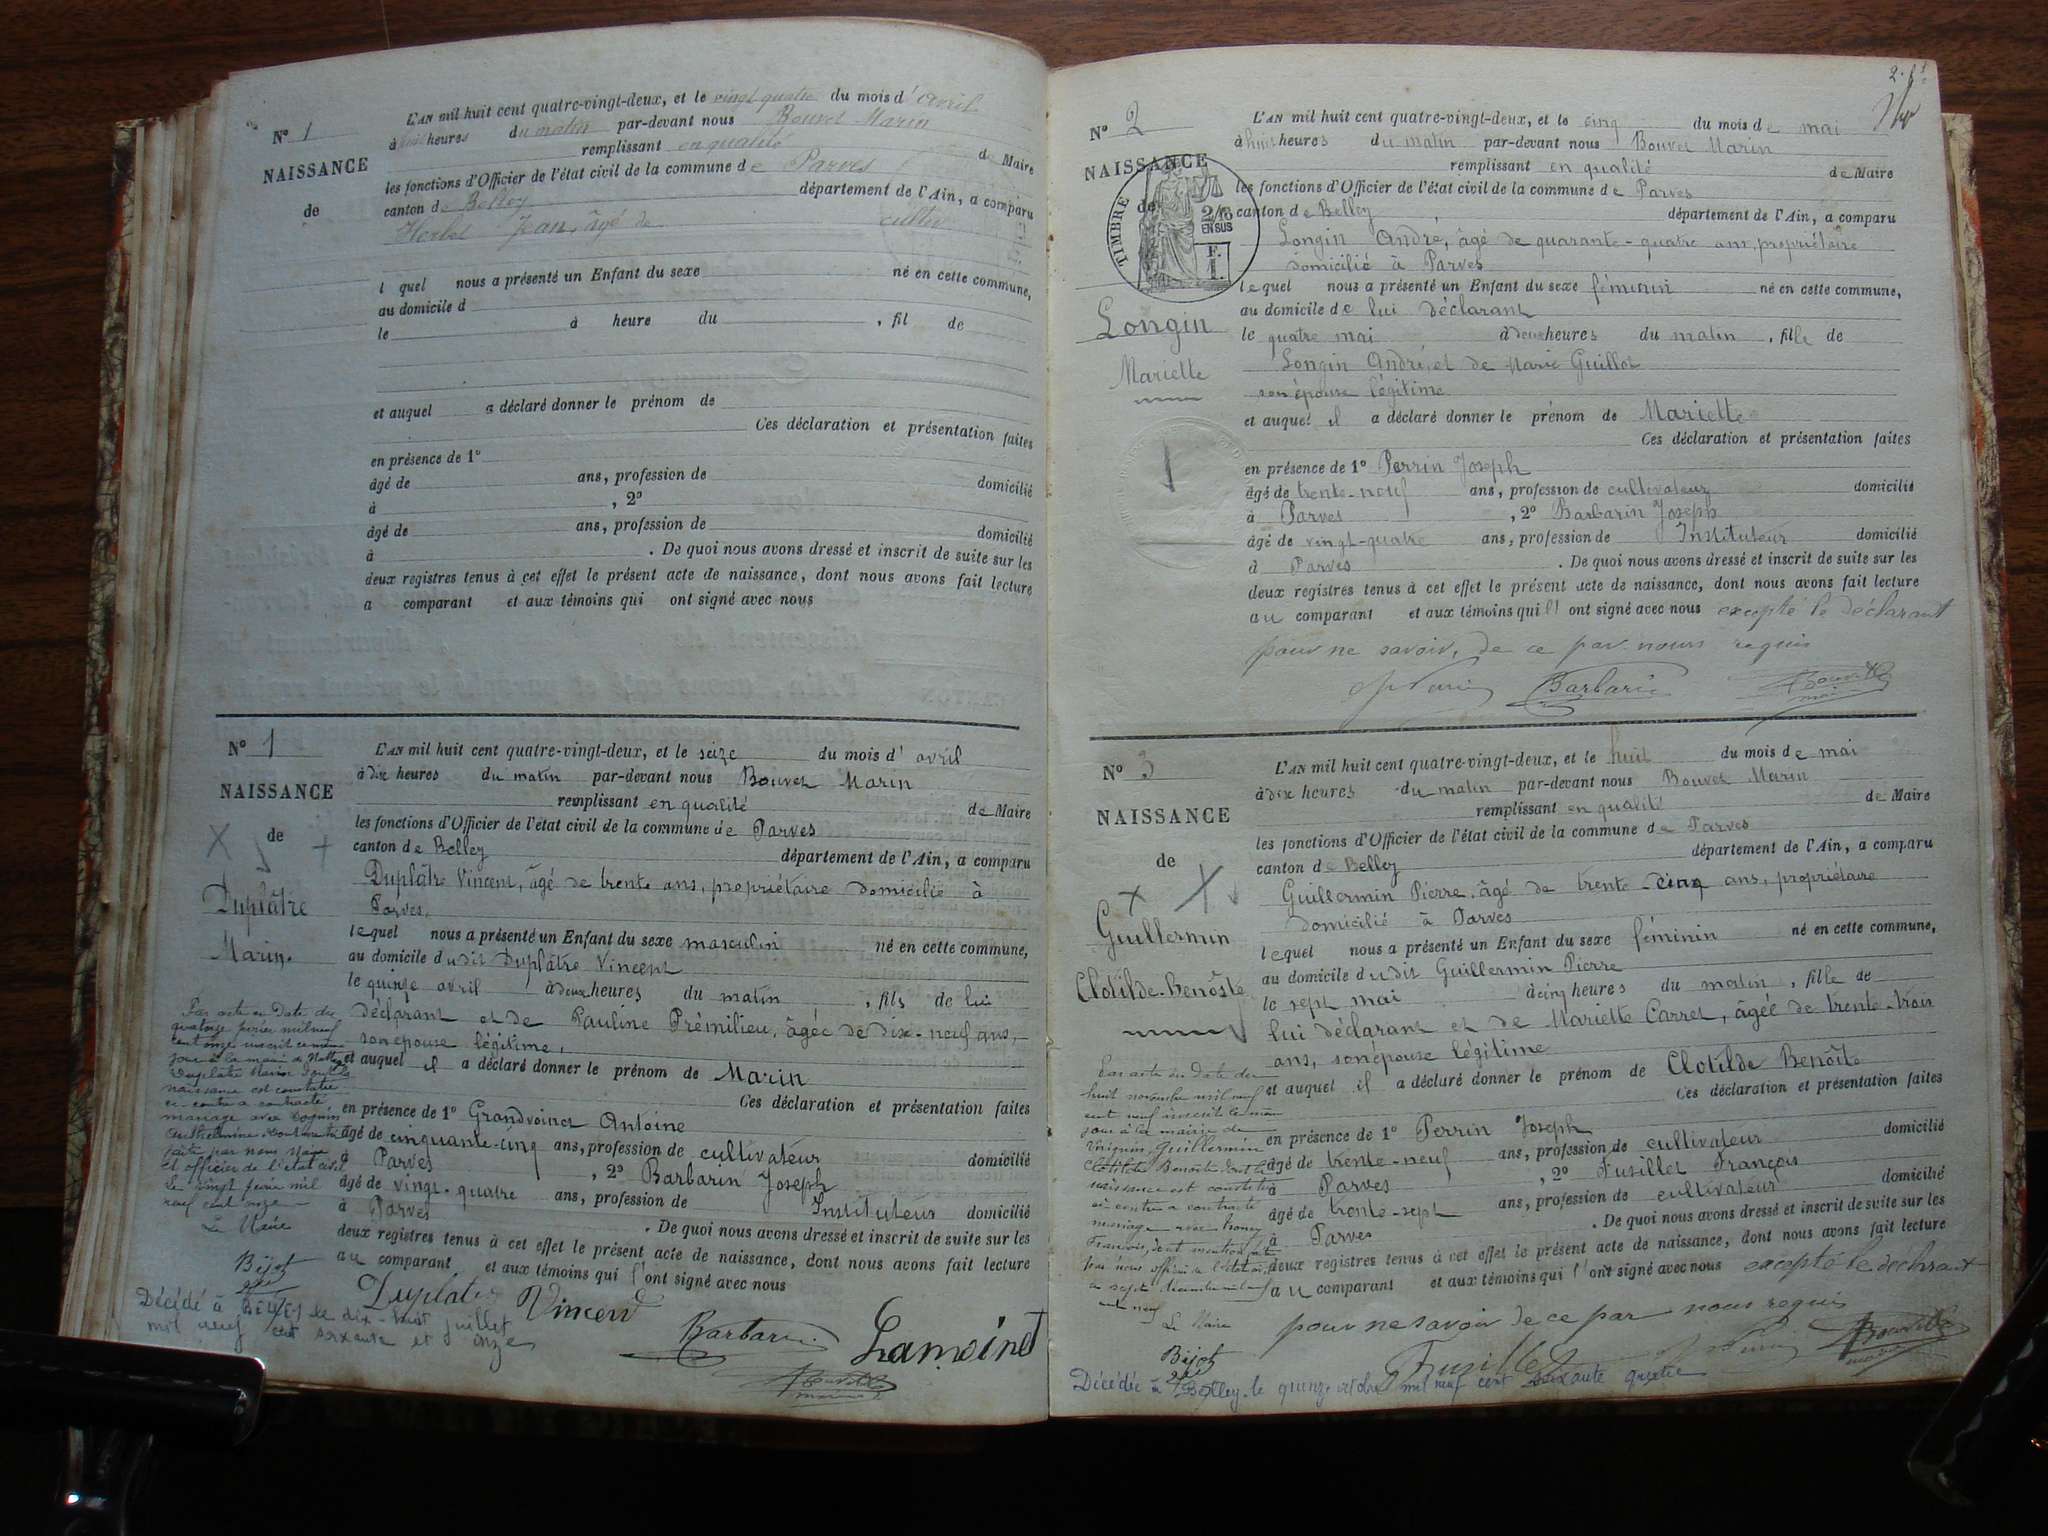 N° 1
NAISSANCE
de
L'AN mil huit cent quatre-vingt-deux, et le vingt quatre du mois d'avril
à heures du matin par-devant nous Bouvet Marin
remplissant en qualité de Maire
les fonctions d'Officier de l'état civil de la commune de Parves
canton de Belley département de l'Ain, a comparu
Jean, âgé de cultiv
l quel nous a présenté un Enfant du sexe né en cette commune,
au domicile d
le à heure du , fil de
et auquel a déclaré donner le prénom de
Ces déclaration et présentation faites
en présence de 1°
âgé de ans, profession de domicilié
à , 2°
âgé de ans, profession de domicilié
à . De quoi nous avons dressé et inscrit de suite sur les
deux registres tenus à cet effet le présent acte de naissance, dont nous avons fait lecture
a comparant et aux témoins qui ont signé avec nous
N° 1
NAISSANCE
de
Duplâtre
Marin.
L'AN mil huit cent quatre-vingt-deux, et le seize du mois d'avril
à dix heures du matin par-devant nous Bouvet Marin
remplissant en qualité de Maire
les fonctions d'Officier de l'état civil de la commune de Parves
canton de Belley département de l'Ain, a comparu
Duplâtre Vincent, âgé de trente ans, propriétaire domicilié à
Parves.
lequel nous a présenté un Enfant du sexe masculin né en cette commune,
au domicile dudit Duplâtre Vincent
le quinze avril à deux heures du matin , fils de lui
déclarant et de Pauline Prémilieu, âgée de dix-neuf ans,
son épouse légitime,
et auquel il a déclaré donner le prénom de Marin
Ces déclaration et présentation faites
en présence de 1° Grandvoinet Antoine
âgé de cinquante-cinq ans, profession de cultivateur domicilié
à Parves , 2° Barbarin Joseph
âgé de vingt-quatre ans, profession de Instituteur domicilié
à Parves . De quoi nous avons dressé et inscrit de suite sur les
deux registres tenus à cet effet le présent acte de naissance, dont nous avons fait lecture
au comparant et aux témoins qui l'ont signé avec nous
Duplatre Vincent
Barbarin
Par acte en date du
quatorze février mil neuf
cent onze inscrit ce même
jour à la mairie de
Duplâtre Marin dont la
naissance est constatée
ci-contre a contracté
mariage avec
faite par nous Maire
et officier de l'état civil
Le vingt février mil
neuf cent onze
Le Maire
Béjot
Décédé à BELLEY le dix-huit juillet
mil neuf cent soixante et onze
2.
N° 2
NAISSANCE
de
TIMBRE
2/10
EN SUS
F.
1.
Longin
Mariette
L'AN mil huit cent quatre-vingt-deux, et le cinq du mois de mai
à huit heures du matin par-devant nous Bouvet Marin
remplissant en qualité de Maire
les fonctions d'Officier de l'état civil de la commune de Parves
canton de Belley département de l'Ain, a comparu
Longin André, âgé de quarante-quatre ans, propriétaire
domicilié à Parves
lequel nous a présenté un Enfant du sexe féminin né en cette commune,
au domicile de lui déclarant
le quatre mai à deux heures du matin , fille de
Longin André, et de Marie Guillot
son épouse légitime
et auquel il a déclaré donner le prénom de Mariette
Ces déclaration et présentation faites
en présence de 1° Perrin Joseph
âgé de trente-neuf ans, profession de cultivateur domicilié
à Parves , 2° Barbarin Joseph
âgé de vingt-quatre ans, profession de Instituteur domicilié
à Parves . De quoi nous avons dressé et inscrit de suite sur les
deux registres tenus à cet effet le présent acte de naissance, dont nous avons fait lecture
au comparant et aux témoins qui l'ont signé avec nous excepté le déclarant
pour ne savoir, de ce par nous requis
Barbarin
N° 3
NAISSANCE
de
Guillermin
Clotilde-Benôite
L'AN mil huit cent quatre-vingt-deux, et le huit du mois de mai
à dix heures du matin par-devant nous Bouvet Marin
remplissant en qualité de Maire
les fonctions d'Officier de l'état civil de la commune de Parves
canton de Belley département de l'Ain, a comparu
Guillermin Pierre, âgé de trente-cinq ans, propriétaire
domicilié à Parves
lequel nous a présenté un Enfant du sexe féminin né en cette commune,
au domicile dudit Guillermin Pierre
le sept mai à cinq heures du matin , fille de
lui déclarant et de Mariette Carret, âgée de trente-trois
ans, son épouse légitime
et auquel il a déclaré donner le prénom de Clotilde Benôite
Ces déclaration et présentation faites
en présence de 1° Perrin Joseph
âgé de trente-neuf ans, profession de cultivateur domicilié
à Parves , 2° Fusillet François
âgé de trente-sept ans, profession de cultivateur domicilié
à Parves . De quoi nous avons dressé et inscrit de suite sur les
deux registres tenus à cet effet le présent acte de naissance, dont nous avons fait lecture
au comparant et aux témoins qui l'ont signé avec nous excepté le déclarant
pour ne savoir de ce par nous requis
Fusillet
Par acte en date du
huit novembre mil neuf
cent neuf inscrit le même
jour à la mairie de
Guillermin
Clotilde Benôite dont la
naissance est constatée
ci-contre a contracté
mariage avec
François, dont mention faite
par nous officier de l'état civil
le sept décembre mil neuf
cent neuf
Le Maire
Béjot
Décédée à Belley le quinze octobre mil neuf cent soixante quatre